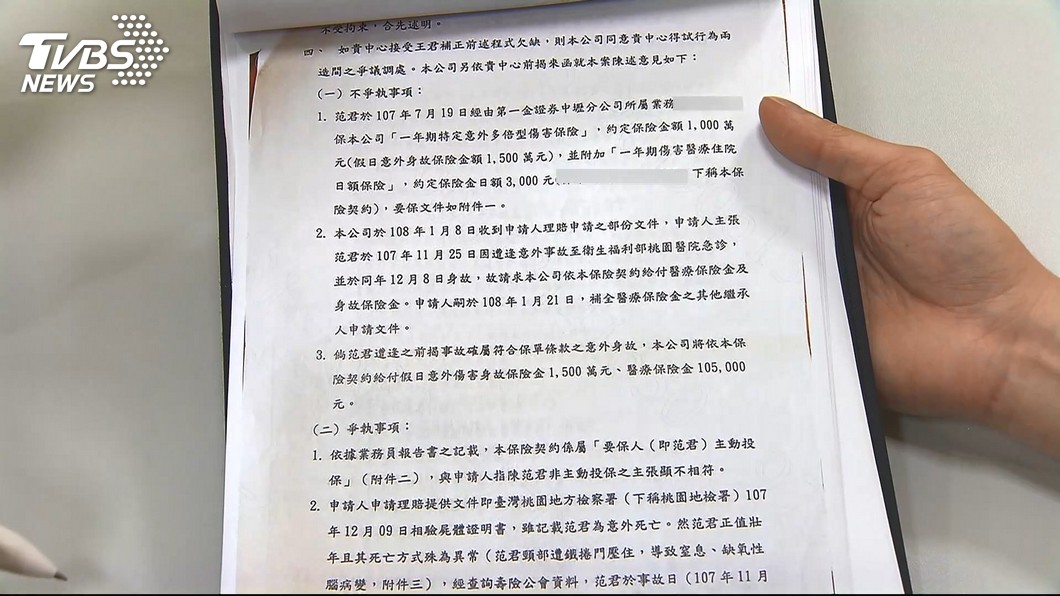 TVBS
NEWS
不受拘束，合先述明。
四、 如貴中心接受王君補正前述程式欠缺，則本公司同意貴中心得試行為兩
造間之爭議調處。本公司另依貴中心前揭來函就本案陳述意見如下：
(一) 不爭執事項：
1. 范君於 107 年 7 月 19 日經由第一金證券中壢分公司所屬業務
保本公司「一年期特定意外多倍型傷害保險」，約定保險金額 1,000 萬
元(假日意外身故保險金額 1,500 萬元)，並附加「一年期傷害醫療住院
日額保險」，約定保險金日額 3,000 元 下稱本保
險契約)，要保文件如附件一。
2. 本公司於 108 年 1 月 8 日收到申請人理賠申請之部份文件，申請人主張
范君於 107 年 11 月 25 日因遭逢意外事故至衛生福利部桃園醫院急診，
並於同年 12 月 8 日身故，故請求本公司依本保險契約給付醫療保險金及
身故保險金。申請人嗣於 108 年 1 月 21 日，補全醫療保險金之其他繼承
人申請文件。
3. 倘范君遭逢之前揭事故確屬符合保單條款之意外身故，本公司將依本保
險契約給付假日意外傷害身故保險金 1,500 萬元、醫療保險金 105,000
元。
(二) 爭執事項：
1. 依據業務員報告書之記載，本保險契約係屬「要保人（即范君）主動投
保」（附件二），與申請人指陳范君非主動投保之主張顯不相符。
2. 申請人申請理賠提供文件即臺灣桃園地方檢察署（下稱桃園地檢署）107
年 12 月 09 日相驗屍體證明書，雖記載范君為意外死亡。然范君正值壯
年且其死亡方式殊為異常（范君頸部遭鐵捲門壓住，導致窒息、缺氧性
腦病變，附件三），經查詢壽險公會資料，范君於事故日（107 年 11 月